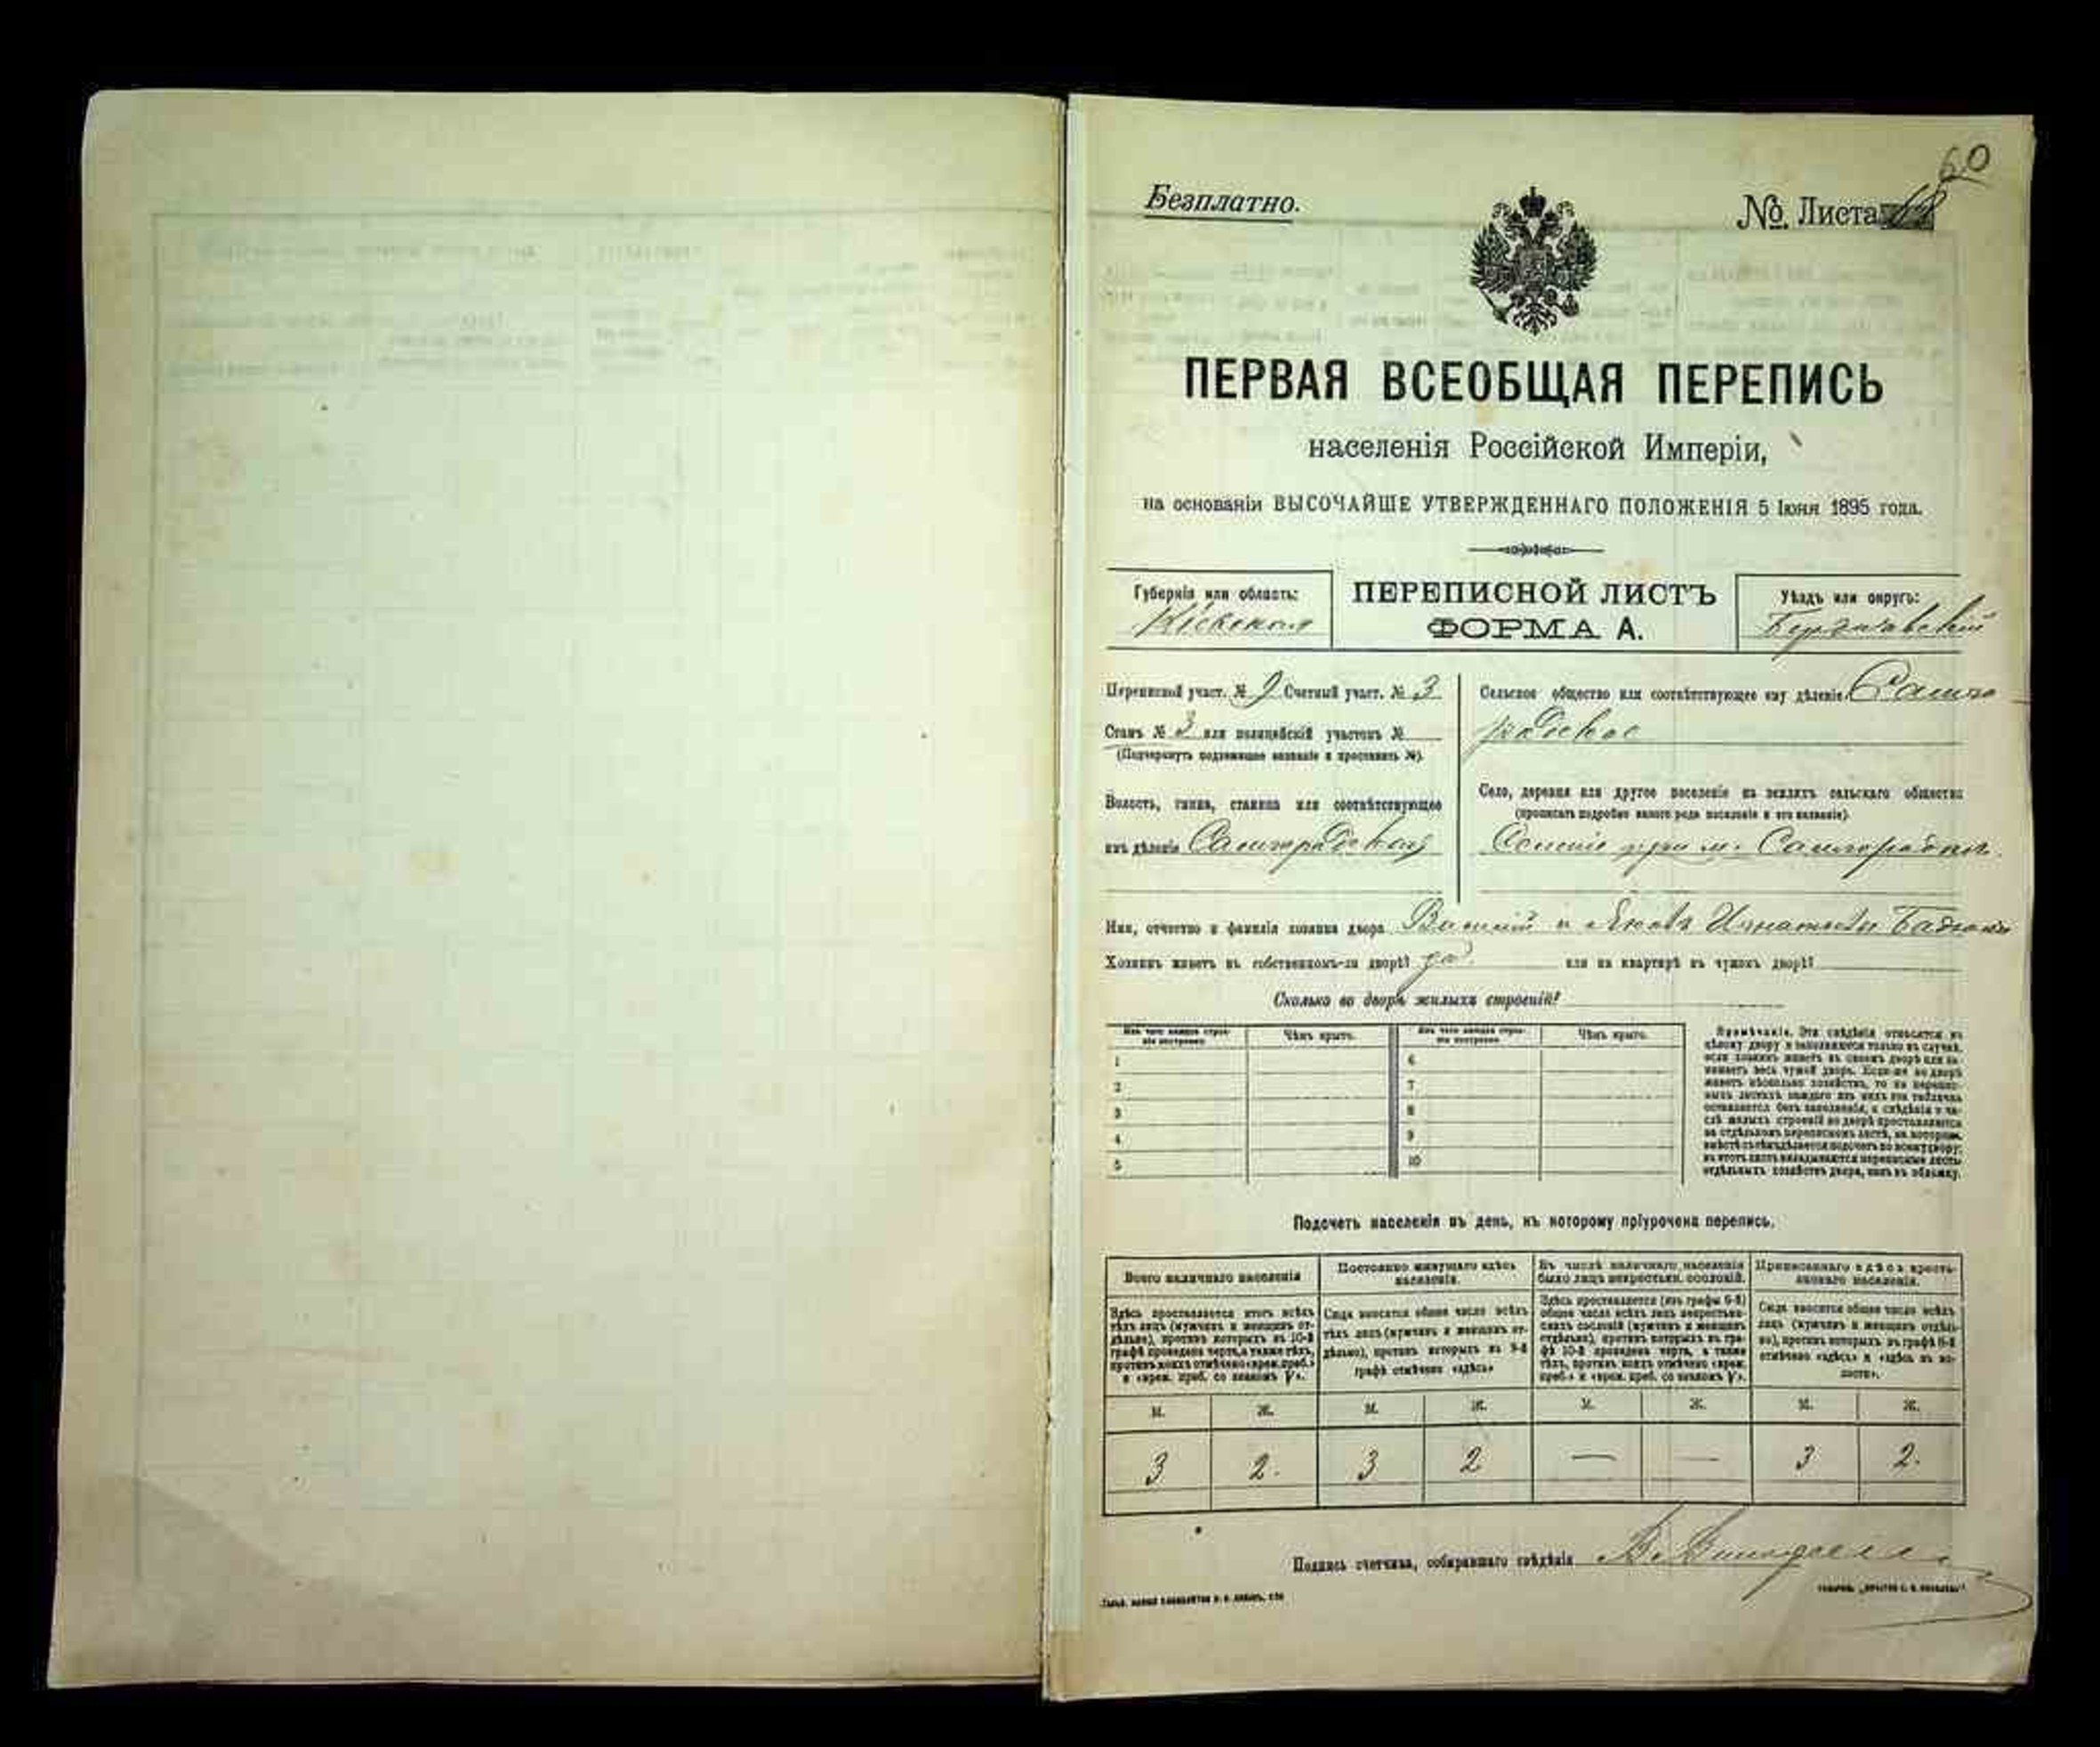 60
Безплатно.
№ Листа 68
ПЕРВАЯ ВСЕОБЩАЯ ПЕРЕПИСЬ
населенія Россійской Имперіи,
на основаніи ВЫСОЧАЙШЕ УТВЕРЖДЕННАГО ПОЛОЖЕНІЯ 5 Іюня 1895 года.
Губернія или область:
Кіевская
ПЕРЕПИСНОЙ ЛИСТЪ
ФОРМА А.
Уѣздъ или округъ:
Бердичевскій
Переписной участ. № 9 Счетный участ. № 3
Станъ № 3 или полицейскій участокъ №
(Подчеркнуть подлежащее названіе и проставить №).
Волость, гмина, станица или соотвѣтствующее
имъ дѣленіе Самгородская
Сельское общество или соотвѣтствующее ему дѣленіе Самго
родское
Село, деревня или другое поселеніе на земляхъ сельскаго общества
(прописать подробно какого рода поселеніе и его названіе).
Селеніе при м. Самгородкѣ
Имя, отчество и фамилія хозяина двора Василій и Яковъ Игнатьевы
Хозяинъ живетъ въ собственномъ-ли дворѣ? да или на квартирѣ въ чужомъ дворѣ?
Сколько во дворѣ жилыхъ строеній?
Изъ чего каждое строе-
ніе построено.
Чѣмъ крыто.
Изъ чего каждое строе-
ніе построено.
Чѣмъ крыто.
1 6
2 7
3 8
4 9
5 10
Примѣчаніе. Эти свѣдѣнія относятся къ
цѣлому двору и заполняются только въ случаѣ,
если хозяинъ живетъ въ своемъ дворѣ или за-
нимаетъ весь чужой дворъ. Если-же во дворѣ
живетъ нѣсколько хозяйствъ, то на перепис-
ныхъ листахъ каждаго изъ нихъ эта табличка
оставляется безъ заполненія, а свѣдѣнія о чи-
слѣ жилыхъ строеній во дворѣ проставляются
на отдѣльномъ переписномъ листѣ, на которомъ
вмѣстѣ съ тѣмъ дѣлается подсчетъ по всему двору;
въ этотъ листъ вкладываются переписные листы
отдѣльныхъ хозяйствъ двора, какъ въ обложку.
Подсчетъ населенія въ день, къ которому пріурочена перепись.
Всего наличнаго населенія
Здѣсь проставляется итогъ всѣхъ
тѣхъ лицъ (мужчинъ и женщинъ от-
дѣльно), противъ которыхъ въ 10-й
графѣ проведена черта, а также тѣхъ,
противъ коихъ отмѣчено «врем. преб.»
и «врем. преб. со знакомъ V».
Постоянно живущаго здѣсь
населенія.
Сюда вносится общее число всѣхъ
тѣхъ лицъ (мужчинъ и женщинъ от-
дѣльно), противъ которыхъ въ 9-й
графѣ отмѣчено «здѣсь»
Въ числѣ наличнаго населенія
было лицъ некрестьян. сословій.
Здѣсь проставляется (изъ графы 6-й)
общее число всѣхъ лицъ некрестьян-
скихъ сословій (мужчинъ и женщинъ
отдѣльно), противъ которыхъ въ гра-
фѣ 10-й проведена черта, а также
тѣхъ, противъ коихъ отмѣчено «врем.
преб.» и «врем. преб. со знакомъ V».
Приписаннаго здѣсь кресть-
янскаго населенія.
Сюда вносится общее число всѣхъ
лицъ (мужчинъ и женщинъ отдѣль-
но), противъ которыхъ въ графѣ 8-й
отмѣчено «здѣсь» и «здѣсь въ во-
лости».
М. Ж. М. Ж. М. Ж. М. Ж.
3 2. 3 2 — — 3 2.
Подпись счетчика, собиравшаго свѣдѣнія